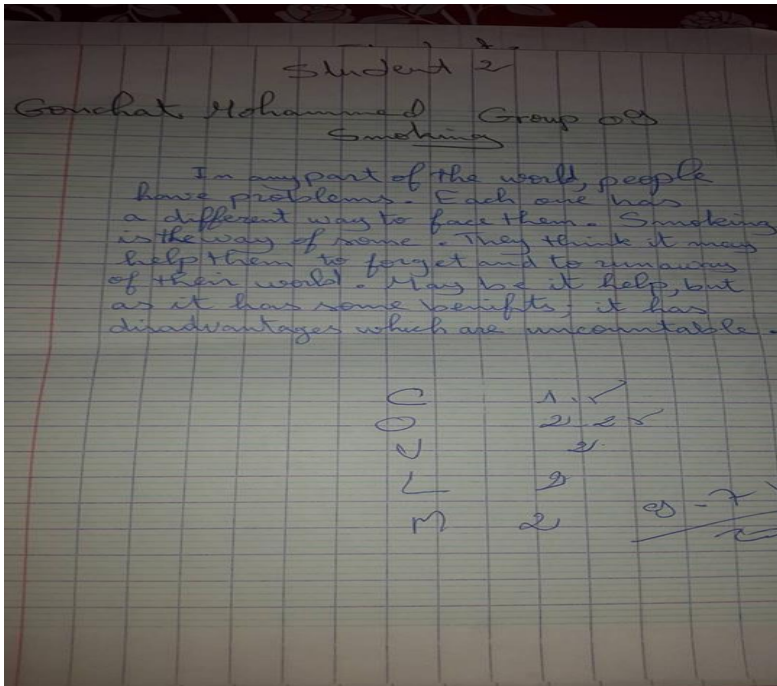 Student 2
Gouchat Mohammed Group 09
Smoking
In any part of the world, people
have problems. Each one has
a different way to face them. Smoking
is the way of some. They think it may
help them to forget and to runaway
of their world. May be it help, but
as it has some benifits, it has
disadvantages which are uncountable.
C 1.
O 2
V 2
L 2
M 2